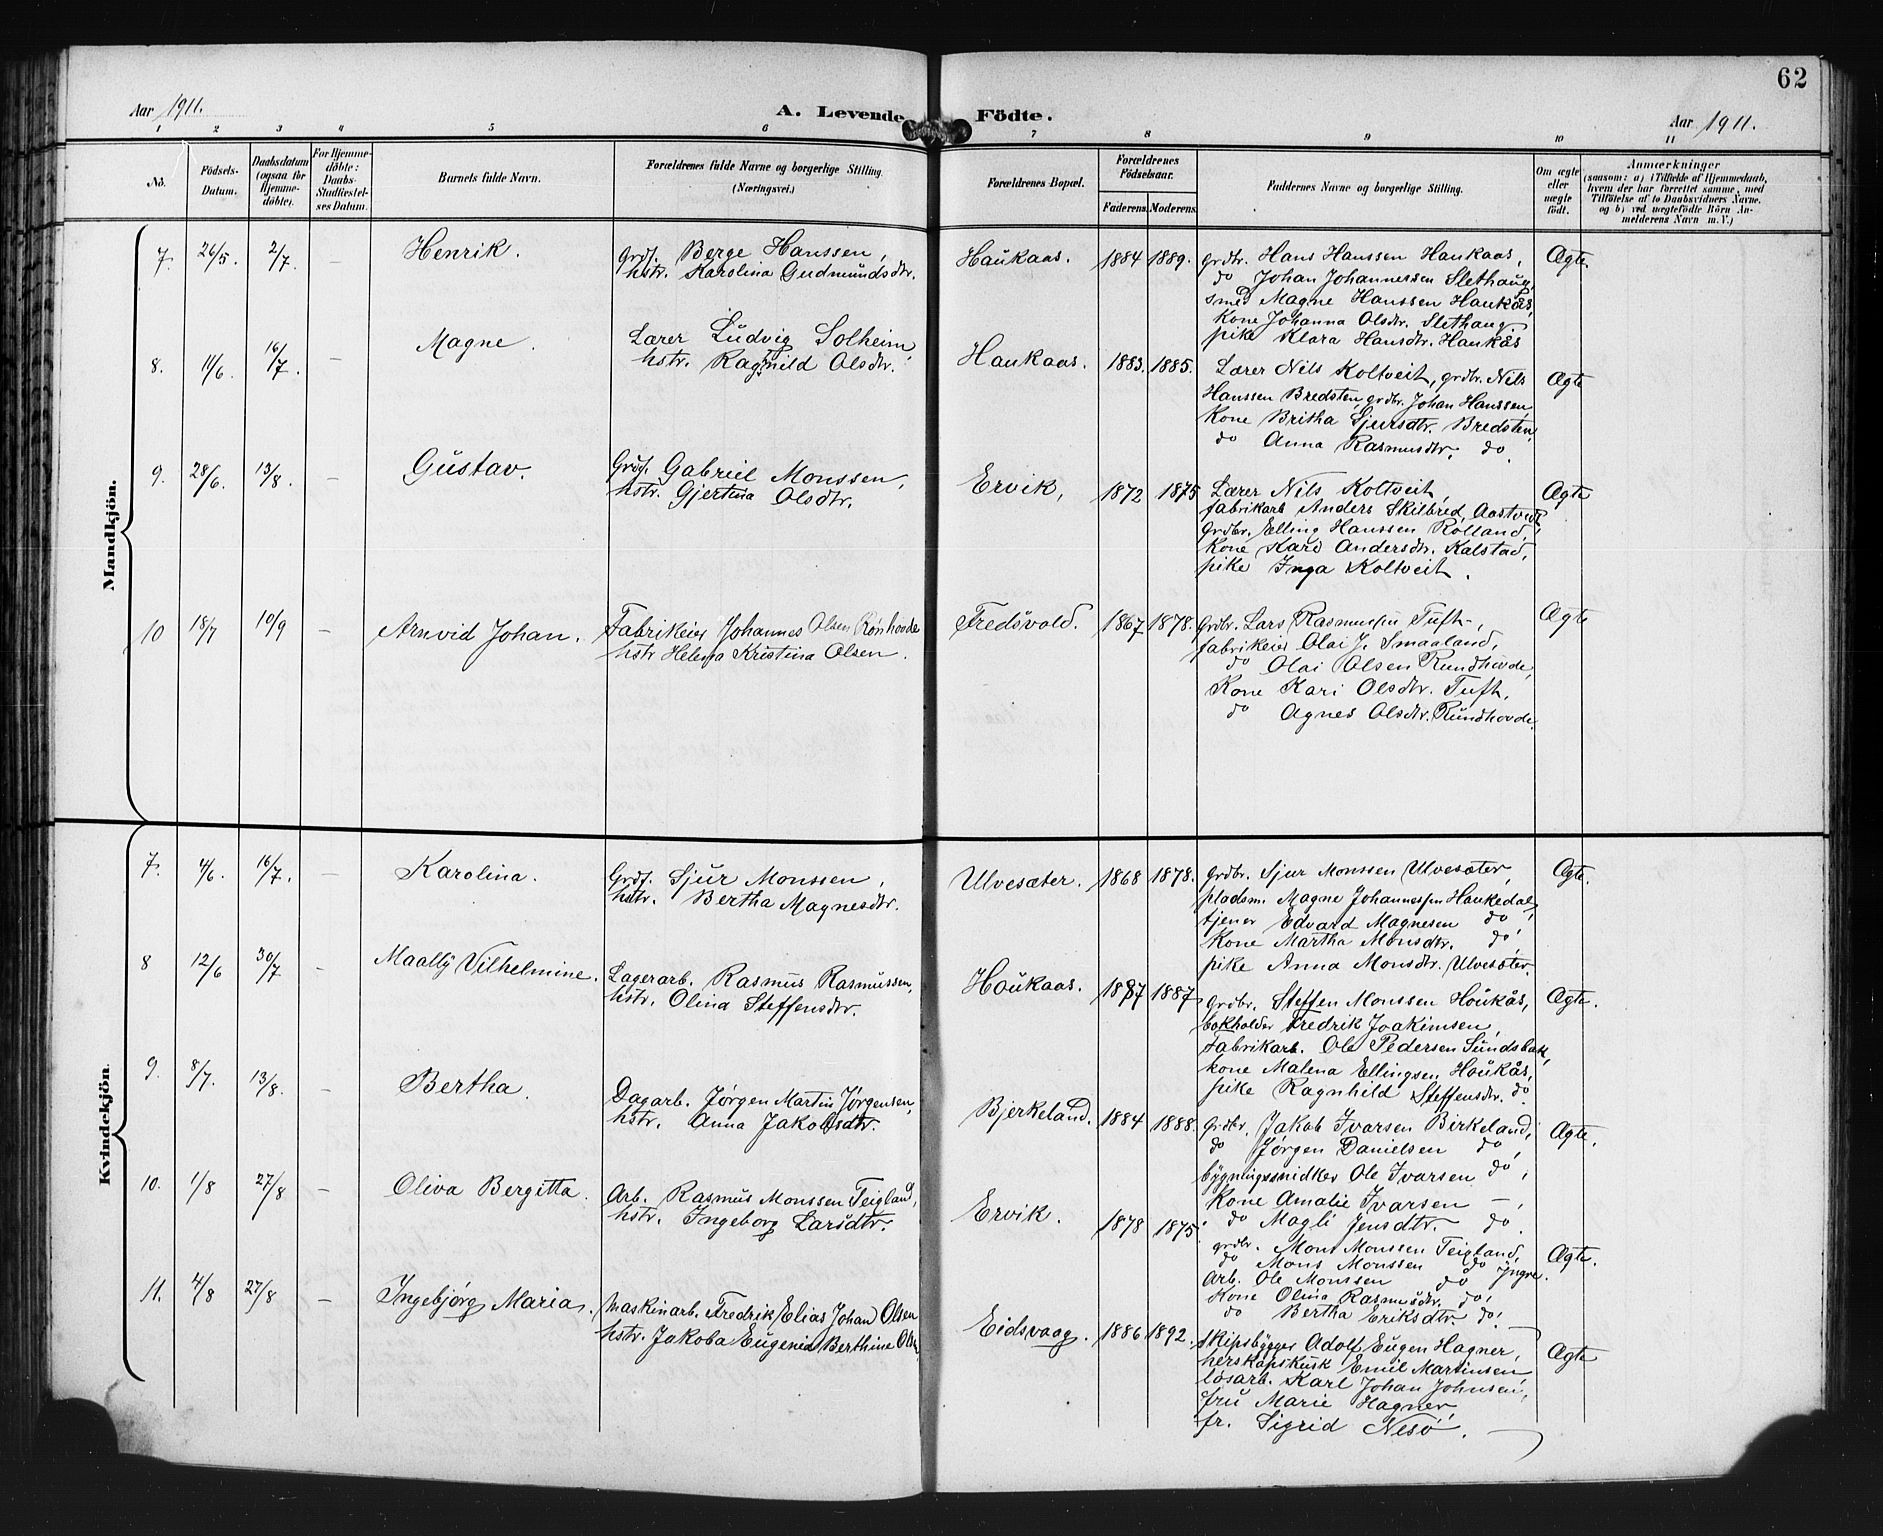 62
Aar 1911.
A. Levende Födte.
Aar 1911.
1 2 3 4 5 6 7 8 9 10 11
No.
Födsels-Datum.
Daabsdatum (ogsaa for Hjemmedöbte).
For Hjemmedöbte: Daabs-Stadfæstelses Datum.
Barnets fulde Navn.
Forældrenes fulde Navne og borgerlige Stilling.
(Næringsvei.)
Forældrenes Bopæl.
Forældrenes Födselsaar.
Faderens. Moderens.
Faddernes Navne og borgerlige Stilling.
Om ægte eller uægte födt.
Anmærkninger
(saasom: a) i Tilfælde af Hjemmedaab,
hvem der har forrettet samme, med
Tilföielse af to Daabsvidners Navne.
og b) ved uægtefödte Börn An-
melderens Navn m. V.)
Mandkjön.
7. 26/5. 2/7. – Henrik. Grdf. Berge Hanssen,
hstr. Karolina Gudmundsdtr.
Haukaas. 1884 1889. grdbr. Hans Hanssen Haukaas, Ægte.
do Johan Johannessen Slethaug,
smed Magne Hanssen Haukås,
Kone Johanna Olsdtr. Slethaug.
pike Klara Hansdtr. Haukås
8. 11/6. 16/7. – Magne. Lærer Ludvig Solheim,
hstr. Ragnhild Olsdtr.
Haukaas. 1883. 1885. Lærer Nils Koltveit, grdbr. Nils Ægte
Hanssen Bredsten, grdbr. Johan Hanssen,
Kone Britha Sjursdtr. Bredsten,
do Anna Rasmusdtr. do.
9. 28/6. 13/8. – Gustav. Grdf. Gabriel Monssen,
hstr. Gjertina Olsdtr.
Ervik, 1872 1875 Lærer Nils Koltveit, Ægte
fabrikarb Anders Skilbred, Aastvedt,
Grdbr. Elling Hanssen Rolland,
Kone Kari Andersdtr. Kalstad,
pike Inga Koltveit.
10 18/7 10/9 – Arnvid Johan. Fabrikeier Johannes Olsen Rönhovde
hstr Helena Kristina Olsen.
Fredsvold. 1867 1878. Grdbr. Lars Rasmussen Tuft, Ægte
fabrikeier Olai J. Smaaland,
do Olai Olsen Rundhovde,
Kone Kari Olsdtr. Tuft,
do Agnes Olsdtr. Rundhovde.
Kvindekjön.
7. 4/6. 16/7. – Karolina. Grdf. Sjur Monssen,
hstr. Bertha Magnesdtr.
Ulvesæter. 1868 1878. grdbr. Sjur Monssen Ulvesæter, Ægte.
pladsm. Magne Johannessen Haukedal,
tjener Edvard Magnesen do,
Kone Martha Monsdtr. do,
pike Anna Monsdtr. Ulvesæter.
8 12/6 30/7 – Maally Vilhelmine. Lagerarb. Rasmus Rasmussen,
hstr. Olina Steffensdtr.
Houkaas. 1887 1887 Grdbr. Steffen Monssen Houkås, Ægte.
bokholder Fredrik Joakimsen,
Fabrikarb. Ole Pedersen Sundsbak,
kone Malena Ellingsen Houkås,
pike Ragnhild Steffensdtr. do
9. 8/7. 13/8. – Bertha. Dagarb. Jørgen Martin Jørgensen,
hstr. Anna Jakobsdtr.
Bjerkeland. 1884 1888. Grdbr. Jakob Ivarsen Birkeland, Ægte.
do Jørgen Danielsen do,
bygningssnidker Ole Ivarsen do,
Kone Amalie Ivarsen –,
do Magli Jensdtr. do.
10. 1/8 27/8 – Oliva Bergitta. Arb. Rasmus Monssen Teigland,
hstr. Ingeborg Larsdtr.
Ervik. 1878 1875. grdbr. Mons Monssen Teigland, Ægte.
do Mons Monssen do Yngre.
Arb. Ole Monssen do
Kone Olina Rasmusdtr. do,
do Bertha Eriksdtr. do.
11. 4/8 27/8 – Ingebjørg Maria. Maskinarb. Fredrik Elias Johan Olsen
hstr. Jakoba Eugenia Berthine Olsen
Eidsvaag. 1886 1892. Skipsbygger Adolf Eugen Hagner, Ægte
herskapskusk Emil Martinsen,
løsarb. Karl Johan Johnsen,
fru Marie Hagner,
fr. Sigrid Nesö.